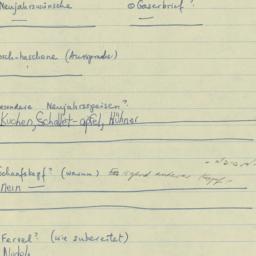 Neujahrswünsche Gaserbrief?
osch-haschono (Aussprache)
esondere Neujahrsspeisen?
Kuchen, Schalet-apfel, Hühner
Schafskopf? (warum)
nein
Farfel? (wie zubereitet)
Nudeln